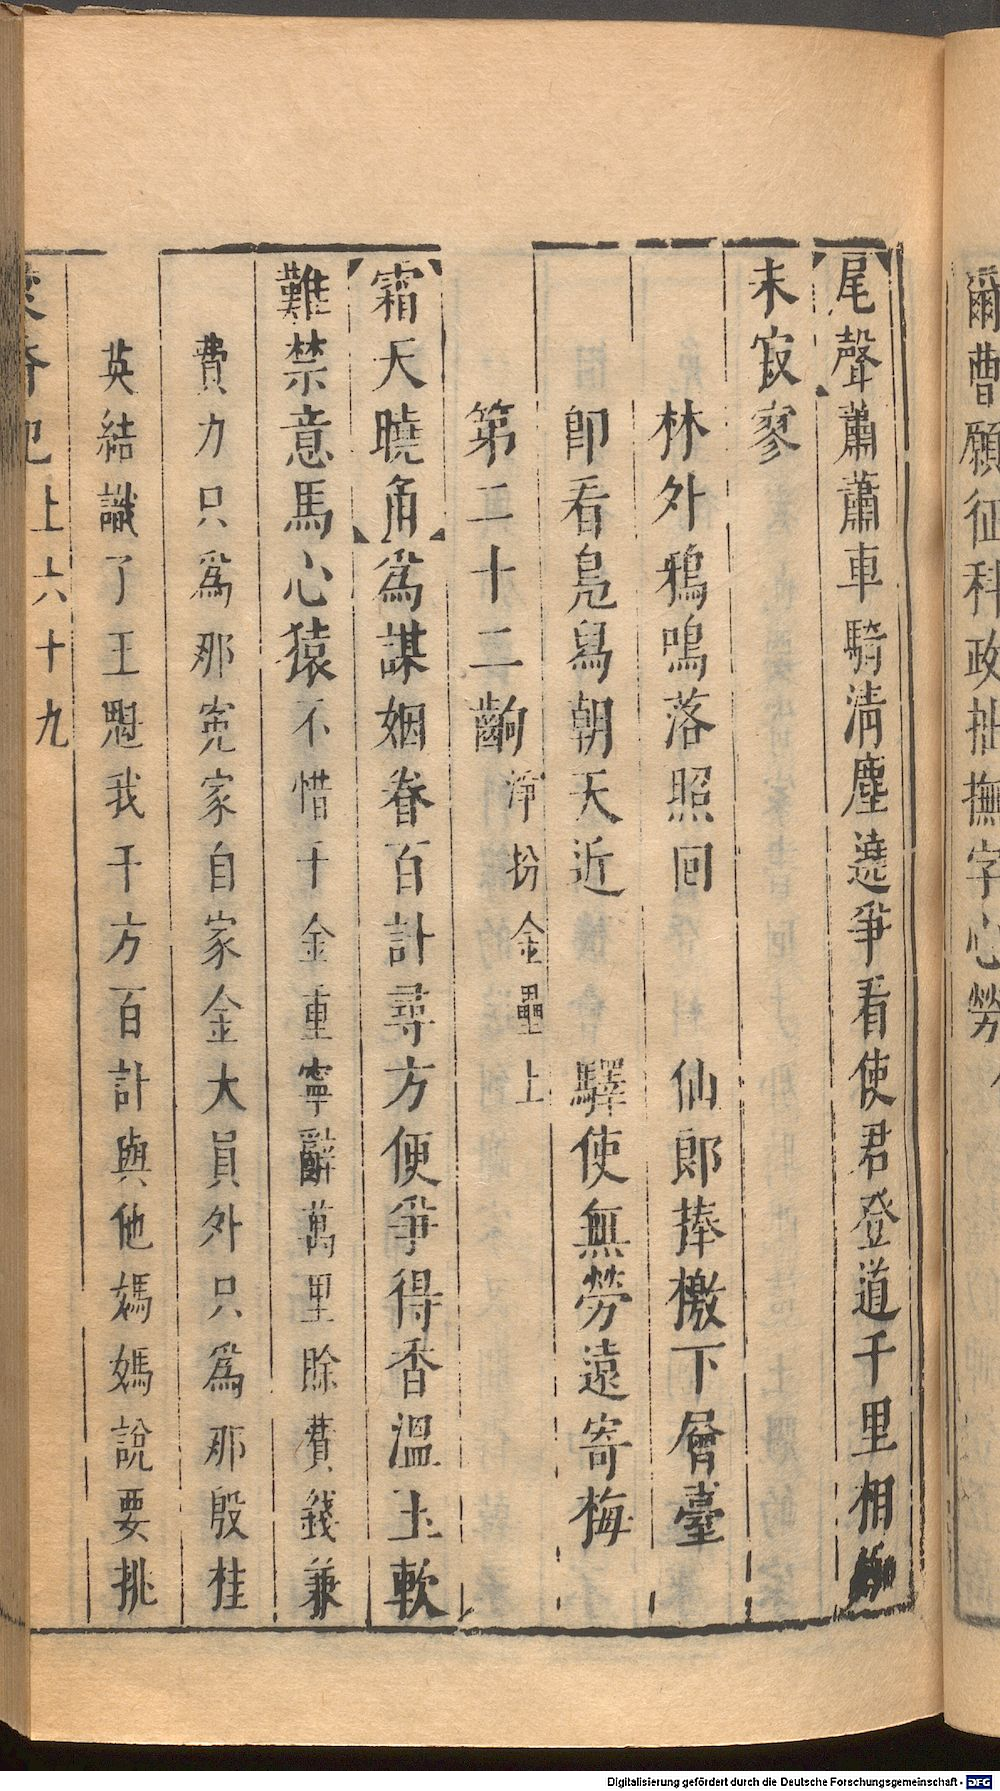 爾曹願征科政拙撫字心勞
尾聲蕭蕭車騎淸塵遶爭看使君登道千里相
未寂寥
林外鴉鳴落照回 仙郎捧檄下層臺
卽看鳧舄朝天近 驛使無勞遠寄梅
第二十二齣淨扮金壘上
霜天曉角爲謀姻眷百計尋方便爭得香溫玉軟
難禁意馬心猿不惜千金重寧辭萬里賒費錢兼
費力只爲那寃家自家金大員外只爲那殷桂
英結識了王魁我千方百計與他媽媽說要挑
上六十九
Digitalisierung gefördert durch die Deutsche Forschungsgemeinschaft - DFG